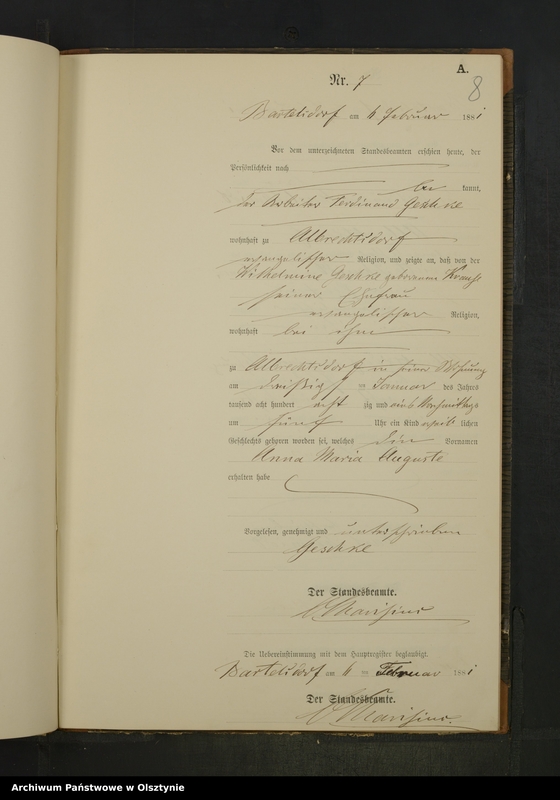 A.
8
Nr. 7
Bartelsdorf am Februar 1881
Vor dem unterzeichneten Standesbeamten erschien heute, der
Persönlichkeit nach
be kannt,
der Arbeiter Ferdinand Geschke
wohnhaft zu Albrechtsdorf
evangelischer Religion, und zeigte an, daß von der
Wilhelmine Geschke geborenen Krause
seiner Ehefrau
evangelischer Religion,
wohnhaft bei ihm
zu Albrechtsdorf in seiner Wohnung
am dreißig ten Januar des Jahres
tausend acht hundert acht zig und eins Vormittags
um fünf Uhr ein Kind weib lichen
Geschlechts geboren worden sei, welches die Vornamen
Anna Maria Auguste
erhalten habe
Vorgelesen, genehmigt und unterschrieben
Geschke
Der Standesbeamte.
Die Uebereinstimmung mit dem Hauptregister beglaubigt.
Bartelsdorf am ten Februar 1881
Der Standesbeamte.
Archiwum Państwowe w Olsztynie